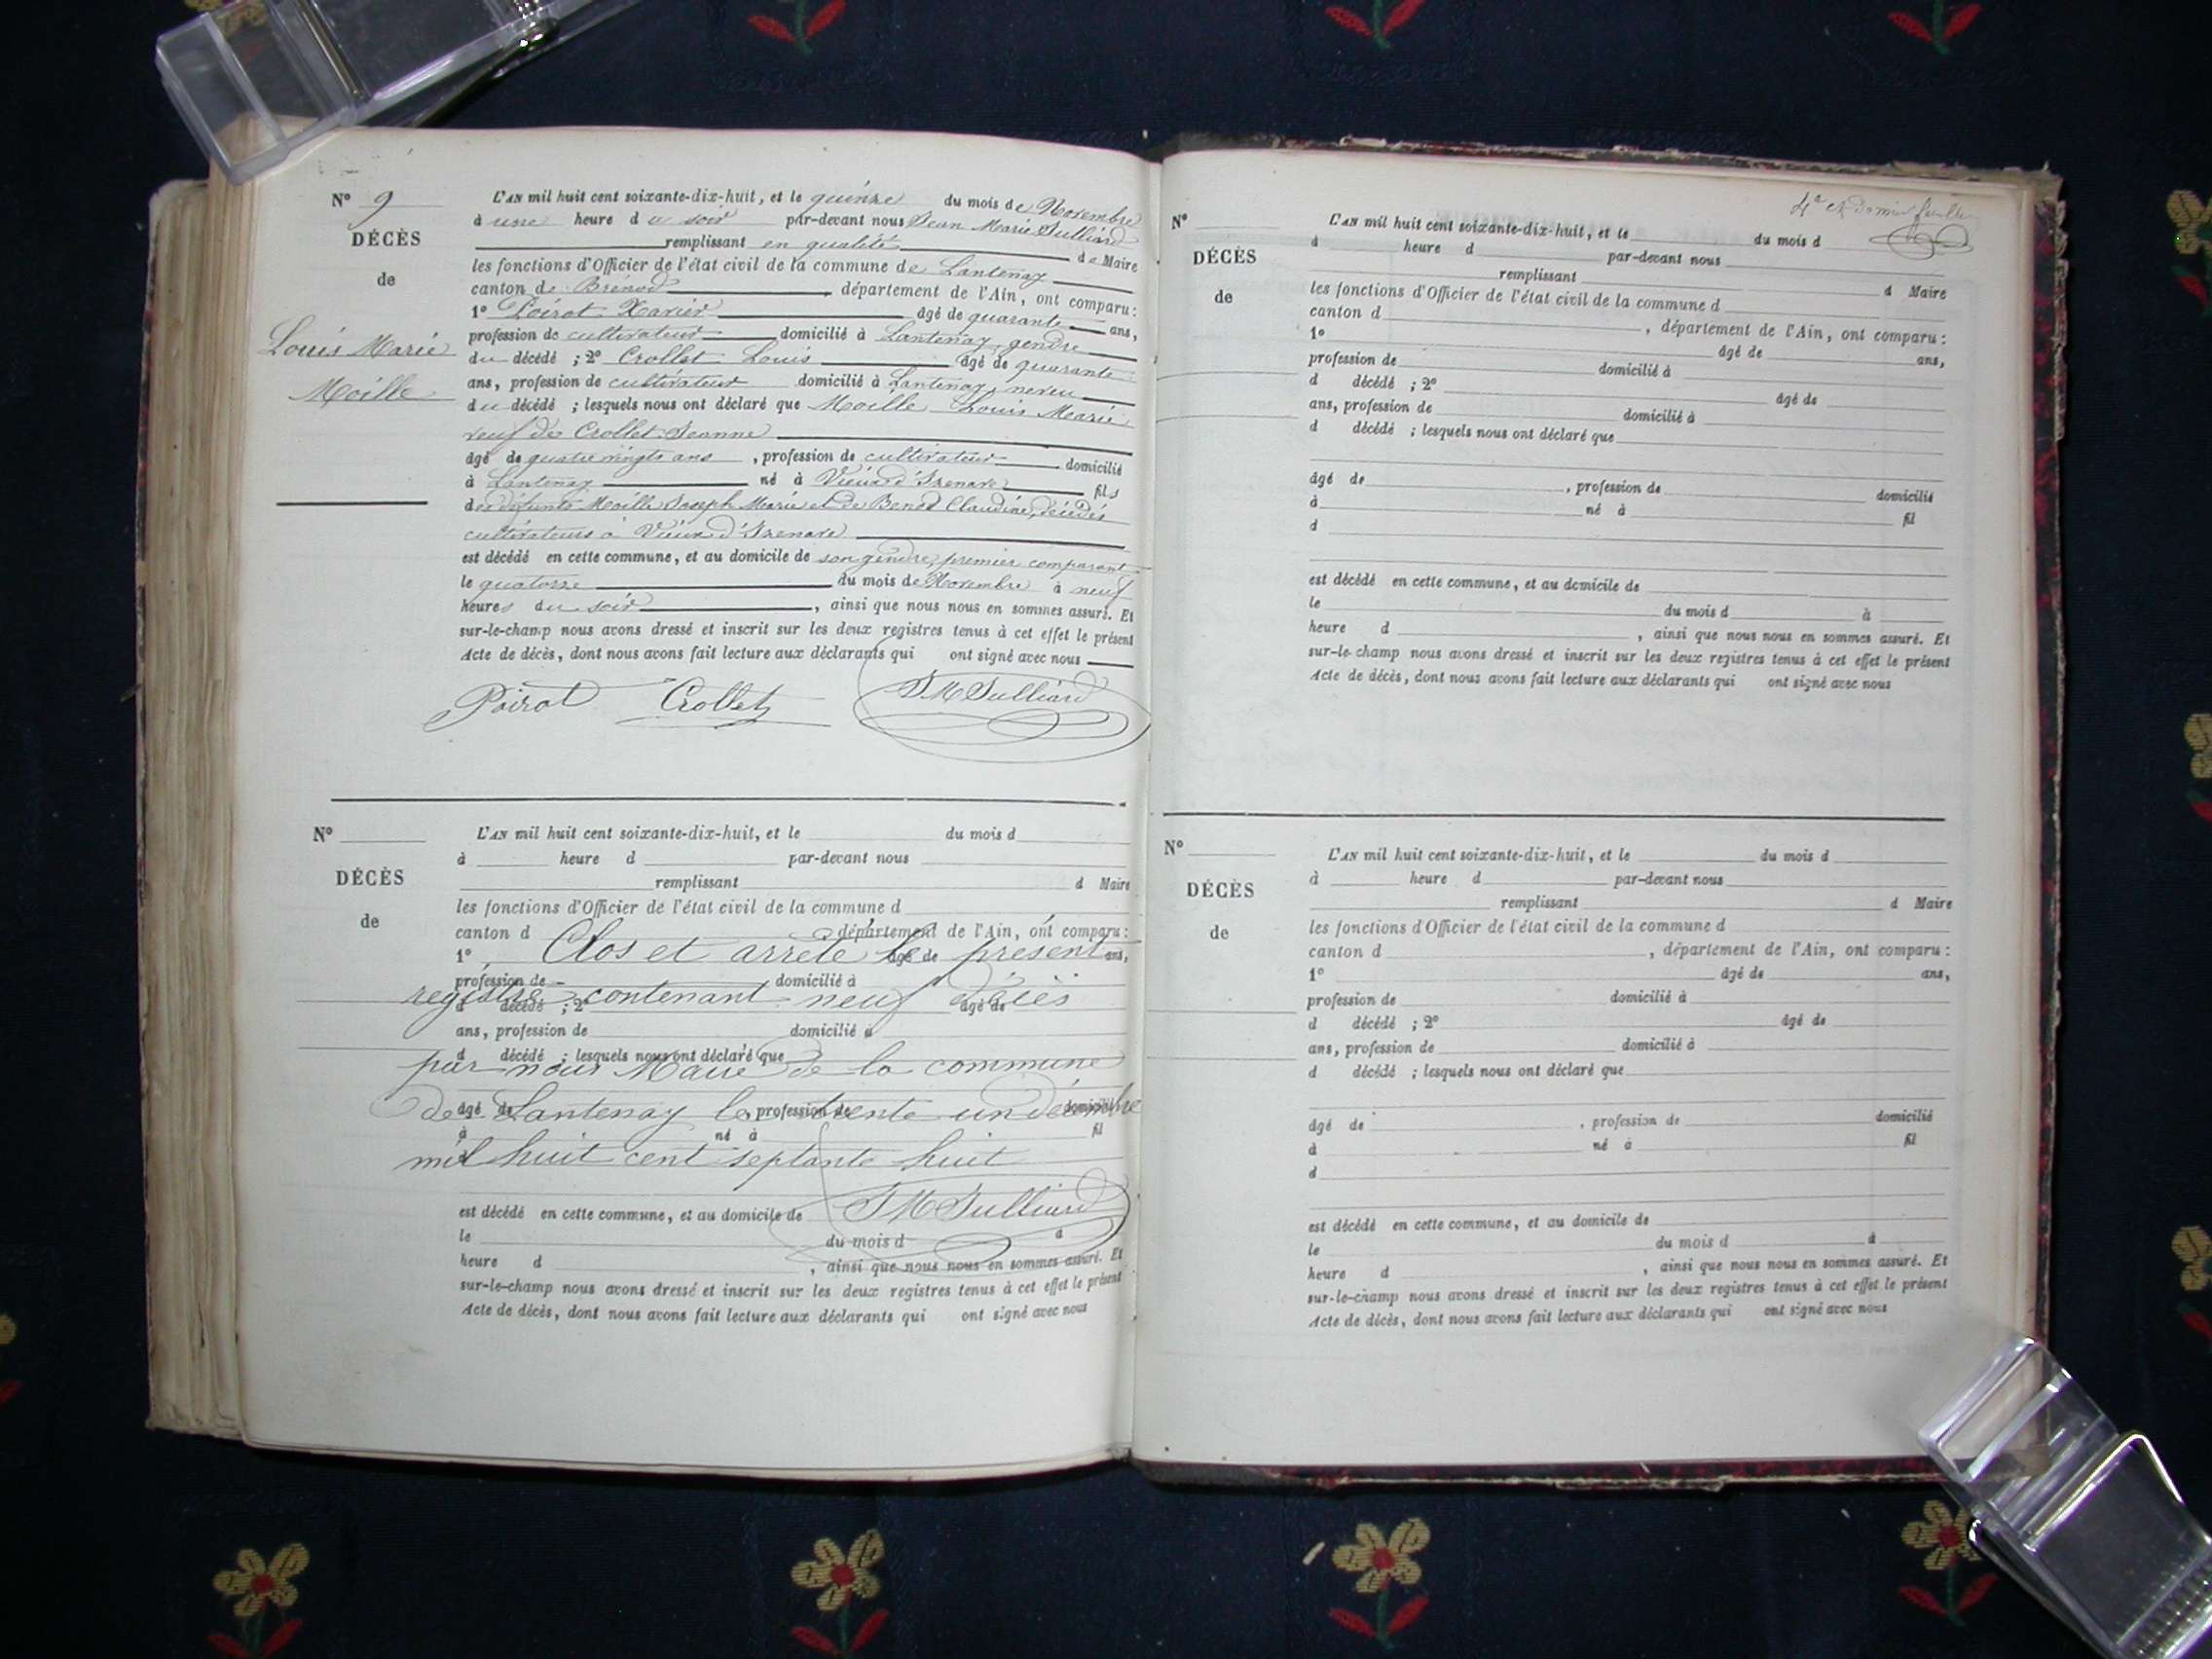 N° 9
DÉCÈS
de
Louis Marie
Moille
L'AN mil huit cent soixante-dix-huit, et le quinze du mois de Novembre
à une heure du soir par-devant nous Jean Marie Julliard
remplissant en qualité de Maire
les fonctions d'Officier de l'état civil de la commune de Lantenay
canton de Brénod département de l'Ain, ont comparu:
1° Poirot Xavier âgé de quarante ans,
profession de cultivateur domicilié à Lantenay, gendre
du décédé ; 2° Crollet Louis âgé de quarante
ans, profession de cultivateur domicilié à Lantenay, neveu
du décédé ; lesquels nous ont déclaré que Moille Louis Marie
veuf de Crollet Jeanne
âgé de quatre vingts ans , profession de cultivateur domicilié
à Lantenay né à Vieux d'Izenave fils
de défunts Moille Joseph Marie et de Benod Claudine, décédés
cultivateurs à Vieux d'Izenave
est décédé en cette commune, et au domicile de son gendre, premier comparant
le quatorze du mois de Novembre à neuf
heures du soir , ainsi que nous nous en sommes assuré. Et
sur-le-champ nous avons dressé et inscrit sur les deux registres tenus à cet effet le présent
Acte de décès, dont nous avons fait lecture aux déclarants qui ont signé avec nous
Poirot Crollet J M Julliard
N°
DÉCÈS
de
L'AN mil huit cent soixante-dix-huit, et le du mois d
à heure d par-devant nous
remplissant d Maire
les fonctions d'Officier de l'état civil de la commune d
canton d département de l'Ain, ont comparu:
Clos et arrêté le présent
1° âgé de ans,
profession de domicilié à
registre contenant neuf décès
d décédé ; 2° âgé de
ans, profession de domicilié à
d décédé ; lesquels nous ont déclaré que
par nous Maire de la commune
de Lantenay le trente un décembre
âgé de profession de domicilié
à né à fil
mil huit cent septante huit
J M Julliard
est décédé en cette commune, et au domicile de
le du mois d à
heure d , ainsi que nous nous en sommes assuré. Et
sur-le-champ nous avons dressé et inscrit sur les deux registres tenus à cet effet le présent
Acte de décès, dont nous avons fait lecture aux déclarants qui ont signé avec nous
4e et dernier feuillet
N°
DÉCÈS
de
L'AN mil huit cent soixante-dix-huit, et le du mois d
à heure d par-devant nous
remplissant d Maire
les fonctions d'Officier de l'état civil de la commune d
canton d , département de l'Ain, ont comparu:
1° âgé de ans,
profession de domicilié à
d décédé ; 2° âgé de
ans, profession de domicilié à
d décédé ; lesquels nous ont déclaré que
âgé de , profession de domicilié
à né à fil
d
est décédé en cette commune, et au domicile de
le du mois d à
heure d , ainsi que nous nous en sommes assuré. Et
sur-le-champ nous avons dressé et inscrit sur les deux registres tenus à cet effet le présent
Acte de décès, dont nous avons fait lecture aux déclarants qui ont signé avec nous
N°
DÉCÈS
de
L'AN mil huit cent soixante-dix-huit, et le du mois d
à heure d par-devant nous
remplissant d Maire
les fonctions d'Officier de l'état civil de la commune d
canton d , département de l'Ain, ont comparu:
1° âgé de ans,
profession de domicilié à
d décédé ; 2° âgé de
ans, profession de domicilié à
d décédé ; lesquels nous ont déclaré que
âgé de , profession de domicilié
à né à fil
d
est décédé en cette commune, et au domicile de
le du mois d à
heure d , ainsi que nous nous en sommes assuré. Et
sur-le-champ nous avons dressé et inscrit sur les deux registres tenus à cet effet le présent
Acte de décès, dont nous avons fait lecture aux déclarants qui ont signé avec nous